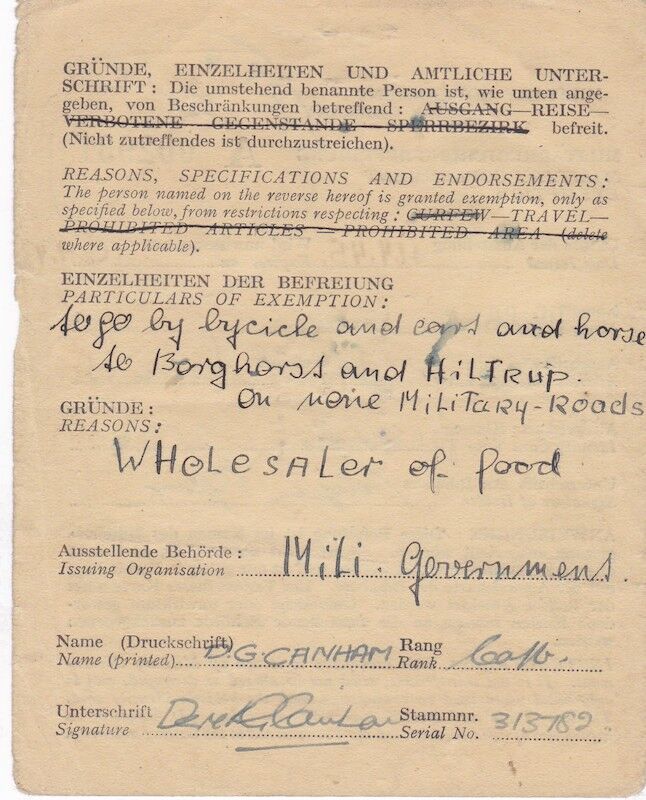 GRÜNDE, EINZELHEITEN UND AMTLICHE UNTER-
SCHRIFT: Die umstehend benannte Person ist, wie unten ange-
geben, von Beschränkungen betreffend: AUSGANG—REISE—
VERBOTENE GEGENSTANDE—SPERRBEZIRK befreit.
(Nicht zutreffendes ist durchzustreichen).
REASONS, SPECIFICATIONS AND ENDORSEMENTS:
The person named on the reverse hereof is granted exemption, only as
specified below, from restrictions respecting: CURFEW—TRAVEL—
PROHIBITED ARTICLES—PROHIBITED AREA (delete
where applicable).
EINZELHEITEN DER BEFREIUNG
PARTICULARS OF EXEMPTION:
to go by bycicle and cart and horse
to Borghorst and HILTRUP.
on none MiLiTARY-Roads
GRÜNDE:
REASONS:
WHOLESALer of food
Ausstellende Behörde:
Issuing Organisation Mili. Government.
Name (Druckschrift)
Name (printed) D.G CANHAM
Rang
Rank Capt.
Unterschrift
Signature Derek G Canham
Stammnr.
Serial No. 313789